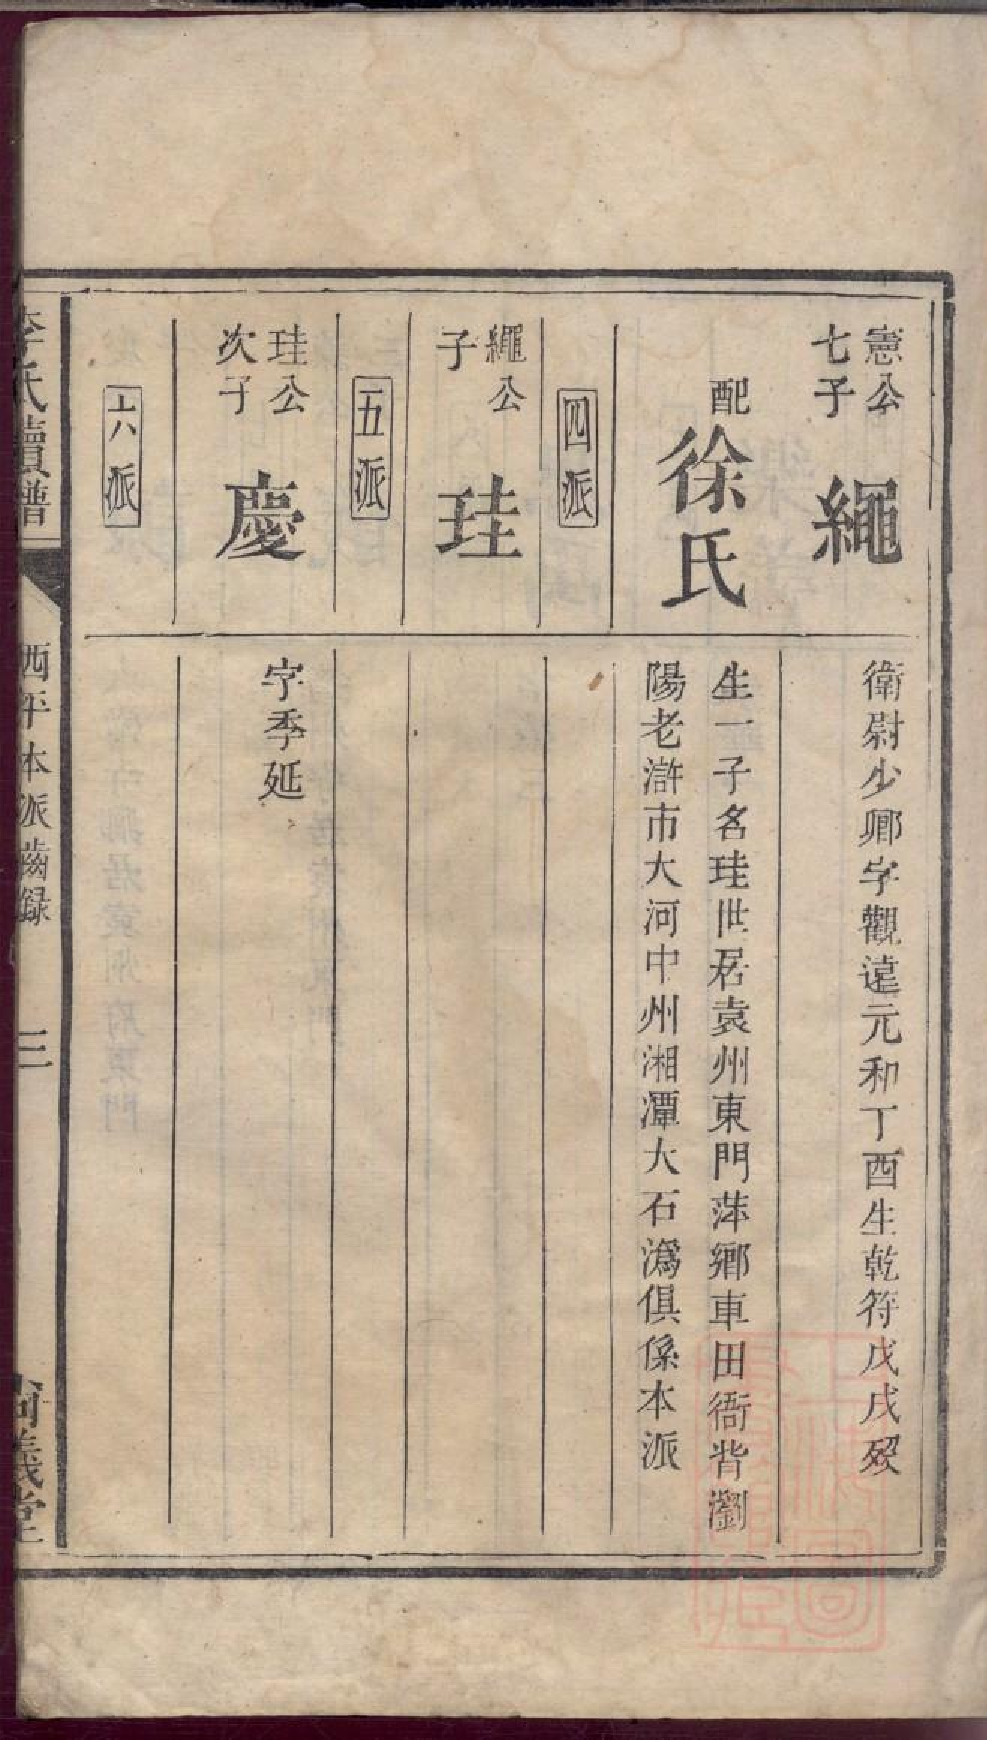 憲公
七子
繩
衛尉少卿字觀遠元和丁酉生乾符戊戌歿
配
徐氏
生一子名珪世居袁州東門萍鄉車田衙背瀏
陽老滸市大河中州湘潭大石溈俱係本派
四派
繩公
子
珪
五派
珪公
次子
慶
字季延
六派
李氏續譜
西平本派齒録
三
義堂